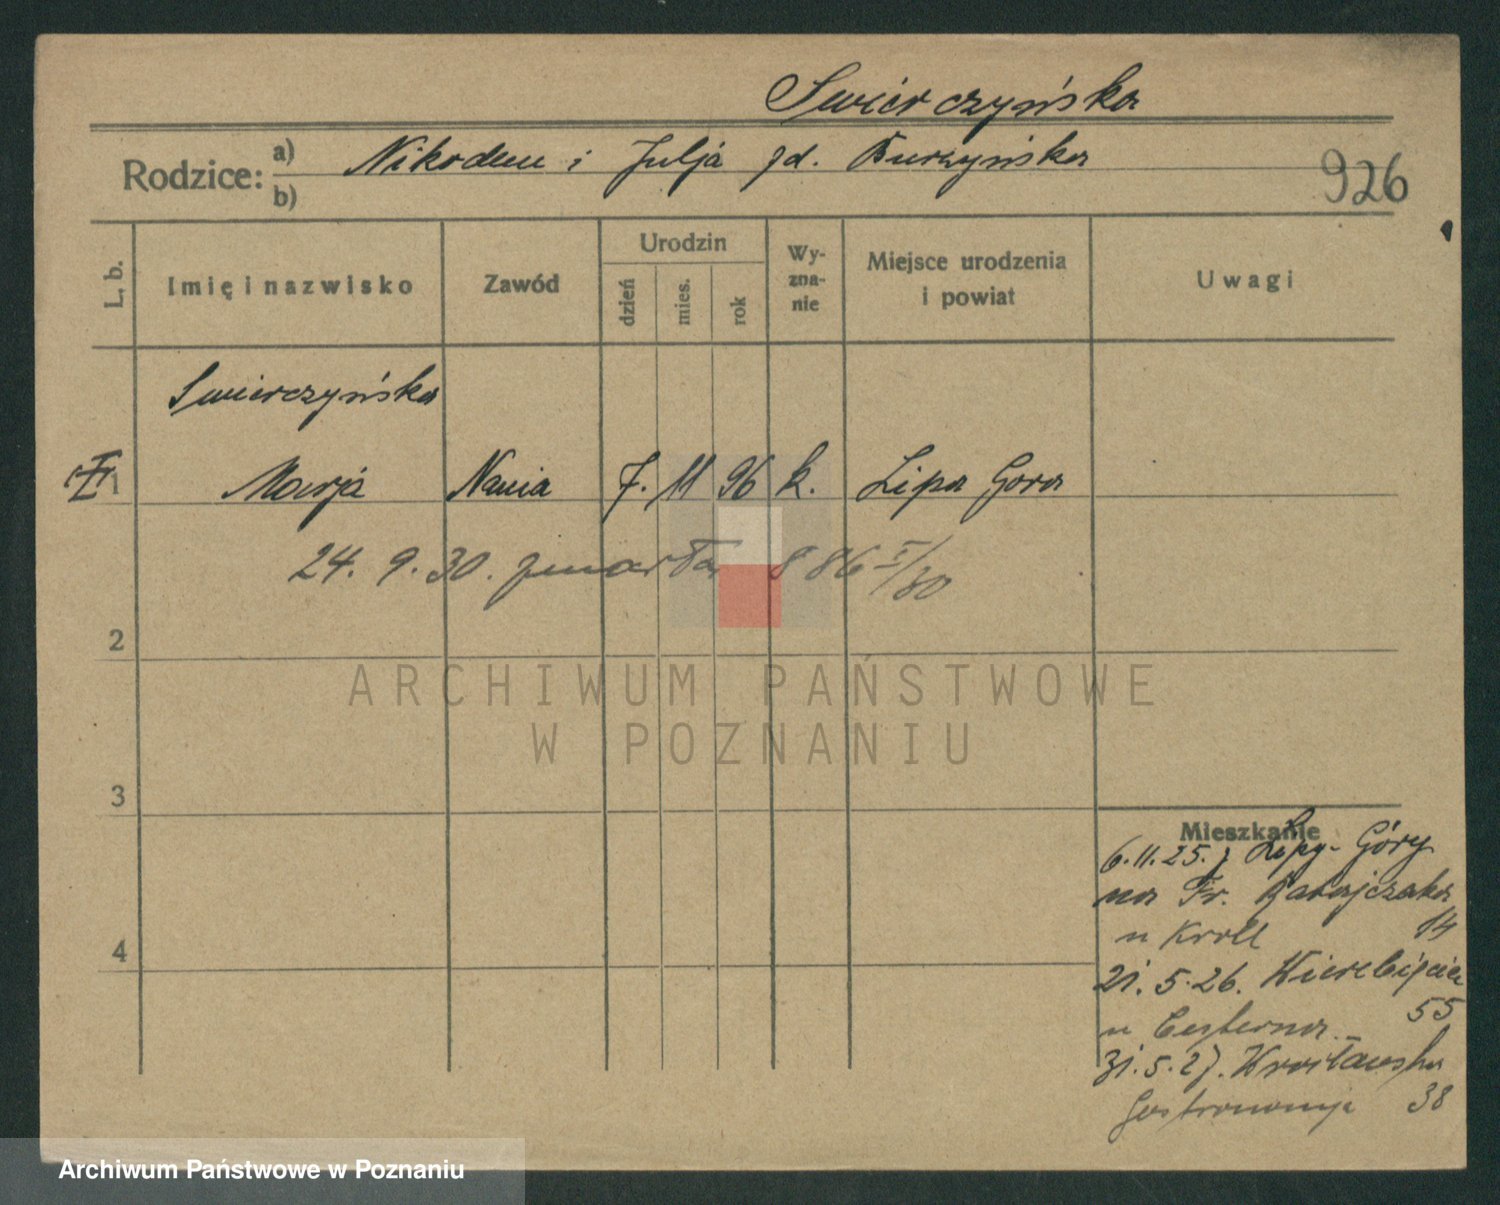 Swierczyńska
Rodzice: a) Nikodem i Julja zd. Burzyńska
b)
926
L. b.
Imię i nazwisko
Zawód
Urodzin
dzień
mies.
rok
Wy-
zna-
nie
Miejsce urodzenia
i powiat
Uwagi
Swierczyńska
1 Marja Niania 7. 11 96 k. Lipa Gora
24. 9. 30. zmarła 886 I/30
2
ARCHIWUM PAŃSTWOWE
W POZNANIU
3
Mieszkanie
6.11.25. z Lipy-Góry
na Fr. Ratajczaka
u Kroll 14
4
21.5.26. Wierzbięcice
55
u
31.5.27. Wrocławska
Gastronomja 38
Archiwum Państwowe w Poznaniu